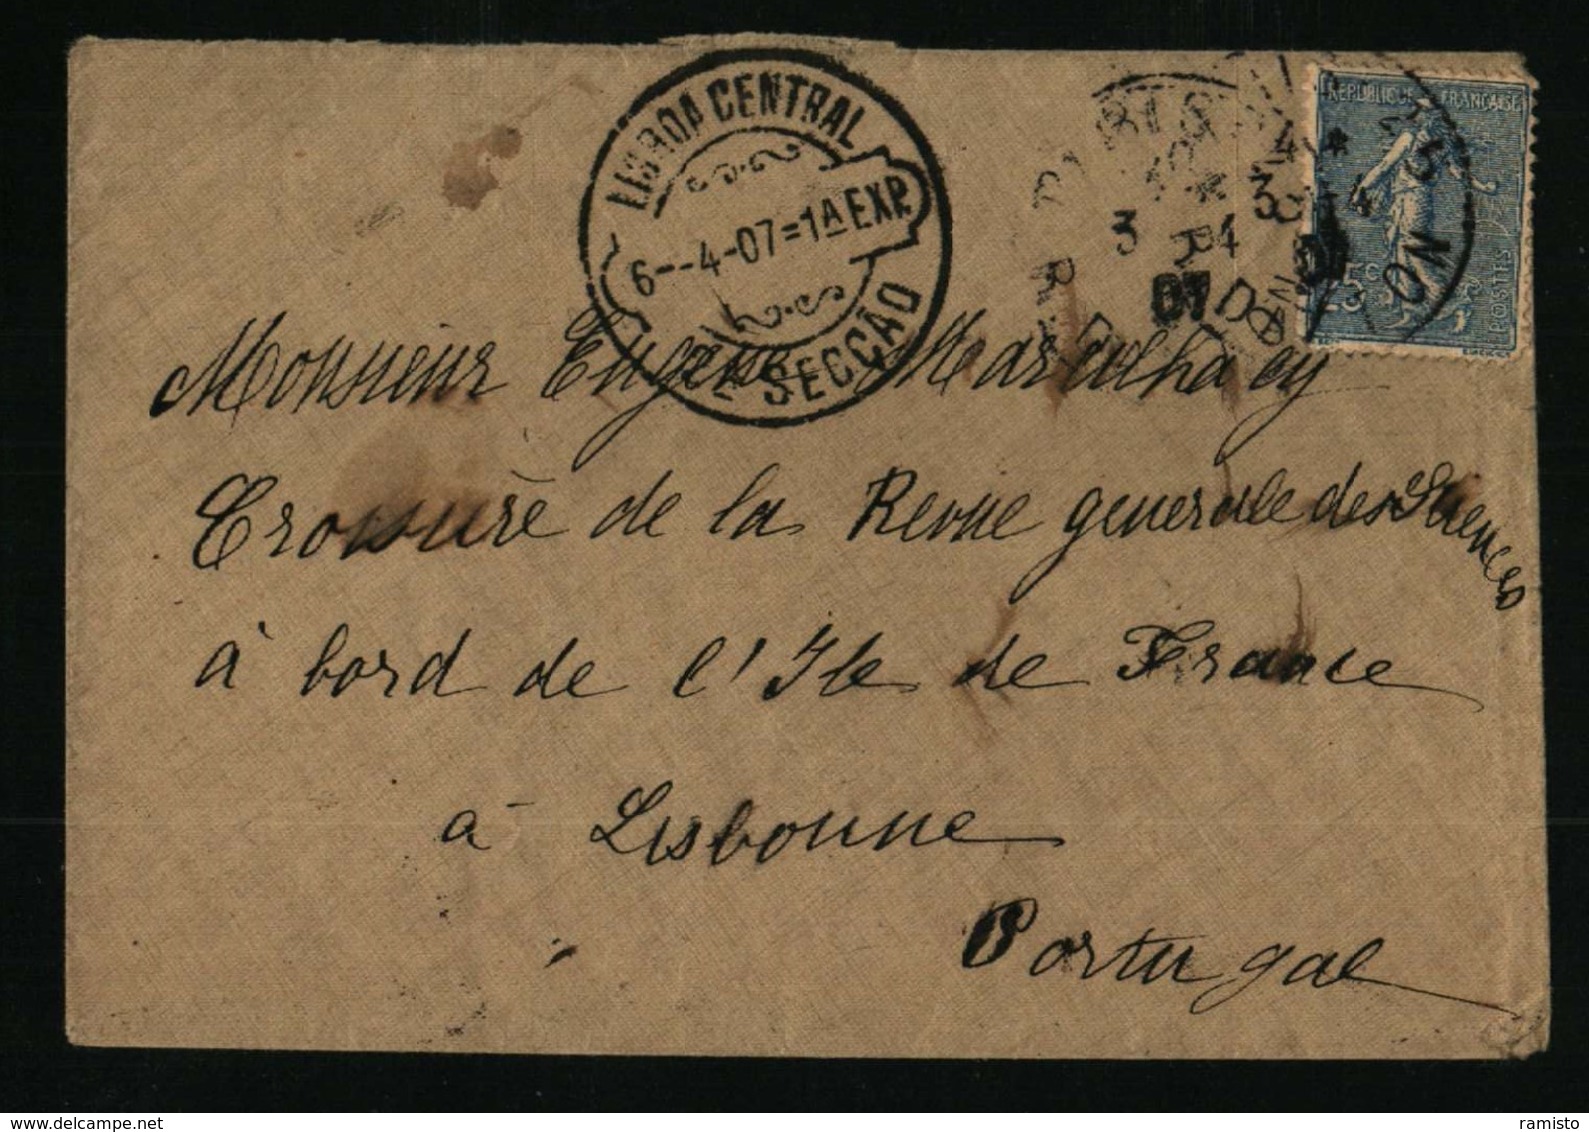 LISBOA CENTRAL
6--4-07=1A EXP.
2A SECÇÃO
3 4
07
3
07
REPUBLIQUE FRANÇAISE
25c
POSTES
Monsieur Eugene
Croisière de la Revue generale des Sciences
à bord de l'Ile de France
à Lisbonne
Portugal
www.delcampe.net
ramisto